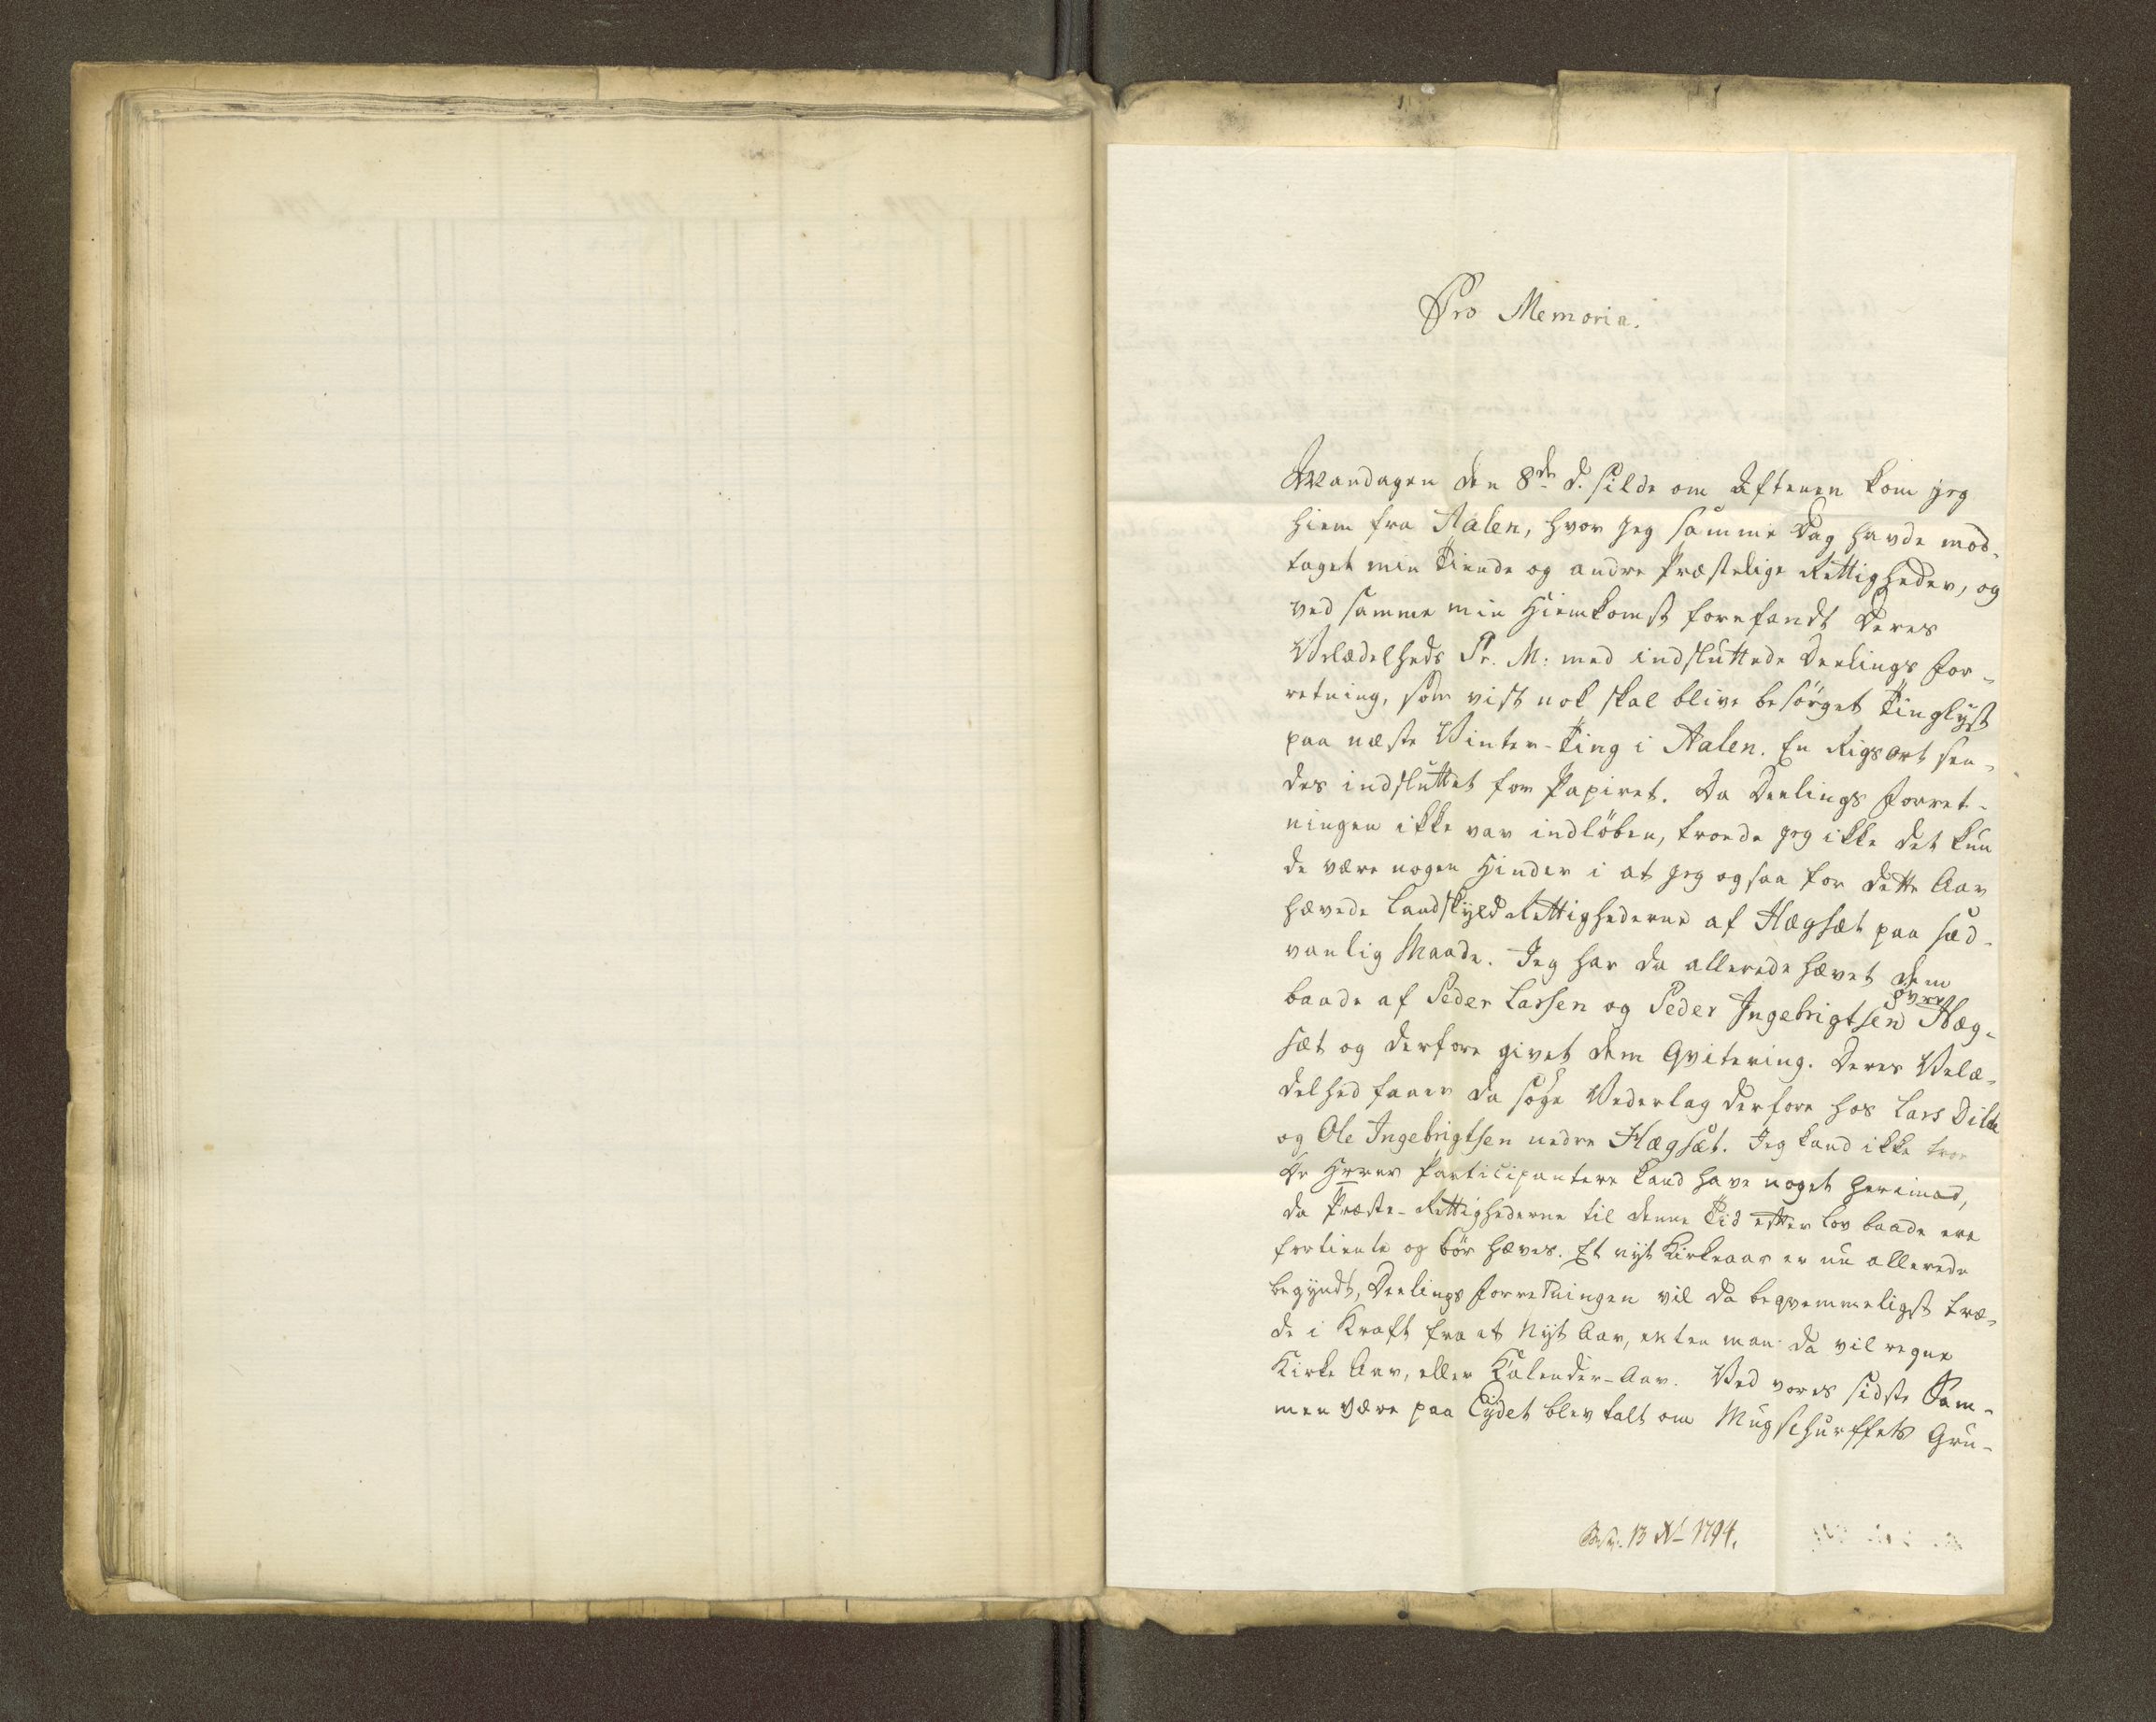 Pro Memoria.
Mandagen den 8de d. silde om Aftenen kom jeg
hiem fra Aalen, hvor jeg samme Dag havde mod-
taget min Tiende og andre Præstelige Rettigheder, og
ved samme min Hiemkomst forefandt Deres
Velædelheds Pr. M: med indsluttede Deelings For-
retning, som vist nok skal blive besörget Tinglyst
paa næste Vinter-Ting i Aalen. En Rigsort sen-
des indsluttet for Papiret. Da Deelings Forret-
ningen ikke var indlöben, troede jeg ikke det kun
de være nogen Hinder i at jeg ogsaa for dette Aar
hævede Landskyld Rettighederne af Hægsæt paa sæd-
vanlig Maade. Jeg har da allerede hævet dem
baade af Peder Larsen og Peder Ingebrigtsen övre Hæg-
sæt og derfore givet dem Qvitering. Deres Velæ-
delhed faaer da söge Vederlag derfore hos Lars Dilde
og Ole Ingebrigtsen nedre Hægsæt. Jeg kand ikke troe
De Herrer Participantere kand have noget herimod,
da Præste-Rettighederne til denne Tid efter Lov baade ere
fortiente og bör hæves. Et nyt Kirkeaar er nu allerede
begyndt, Deelings Forretningen vil da beqvemmeligst træ-
de i Kraft fra et Nyt Aar, enten man da vil regne
Kirke Aar, eller Kalender-Aar. Ved vores sidste Sam-
men være paa Eydet blev talt om Mugschurffets Gru-
13 Xbr 1794.